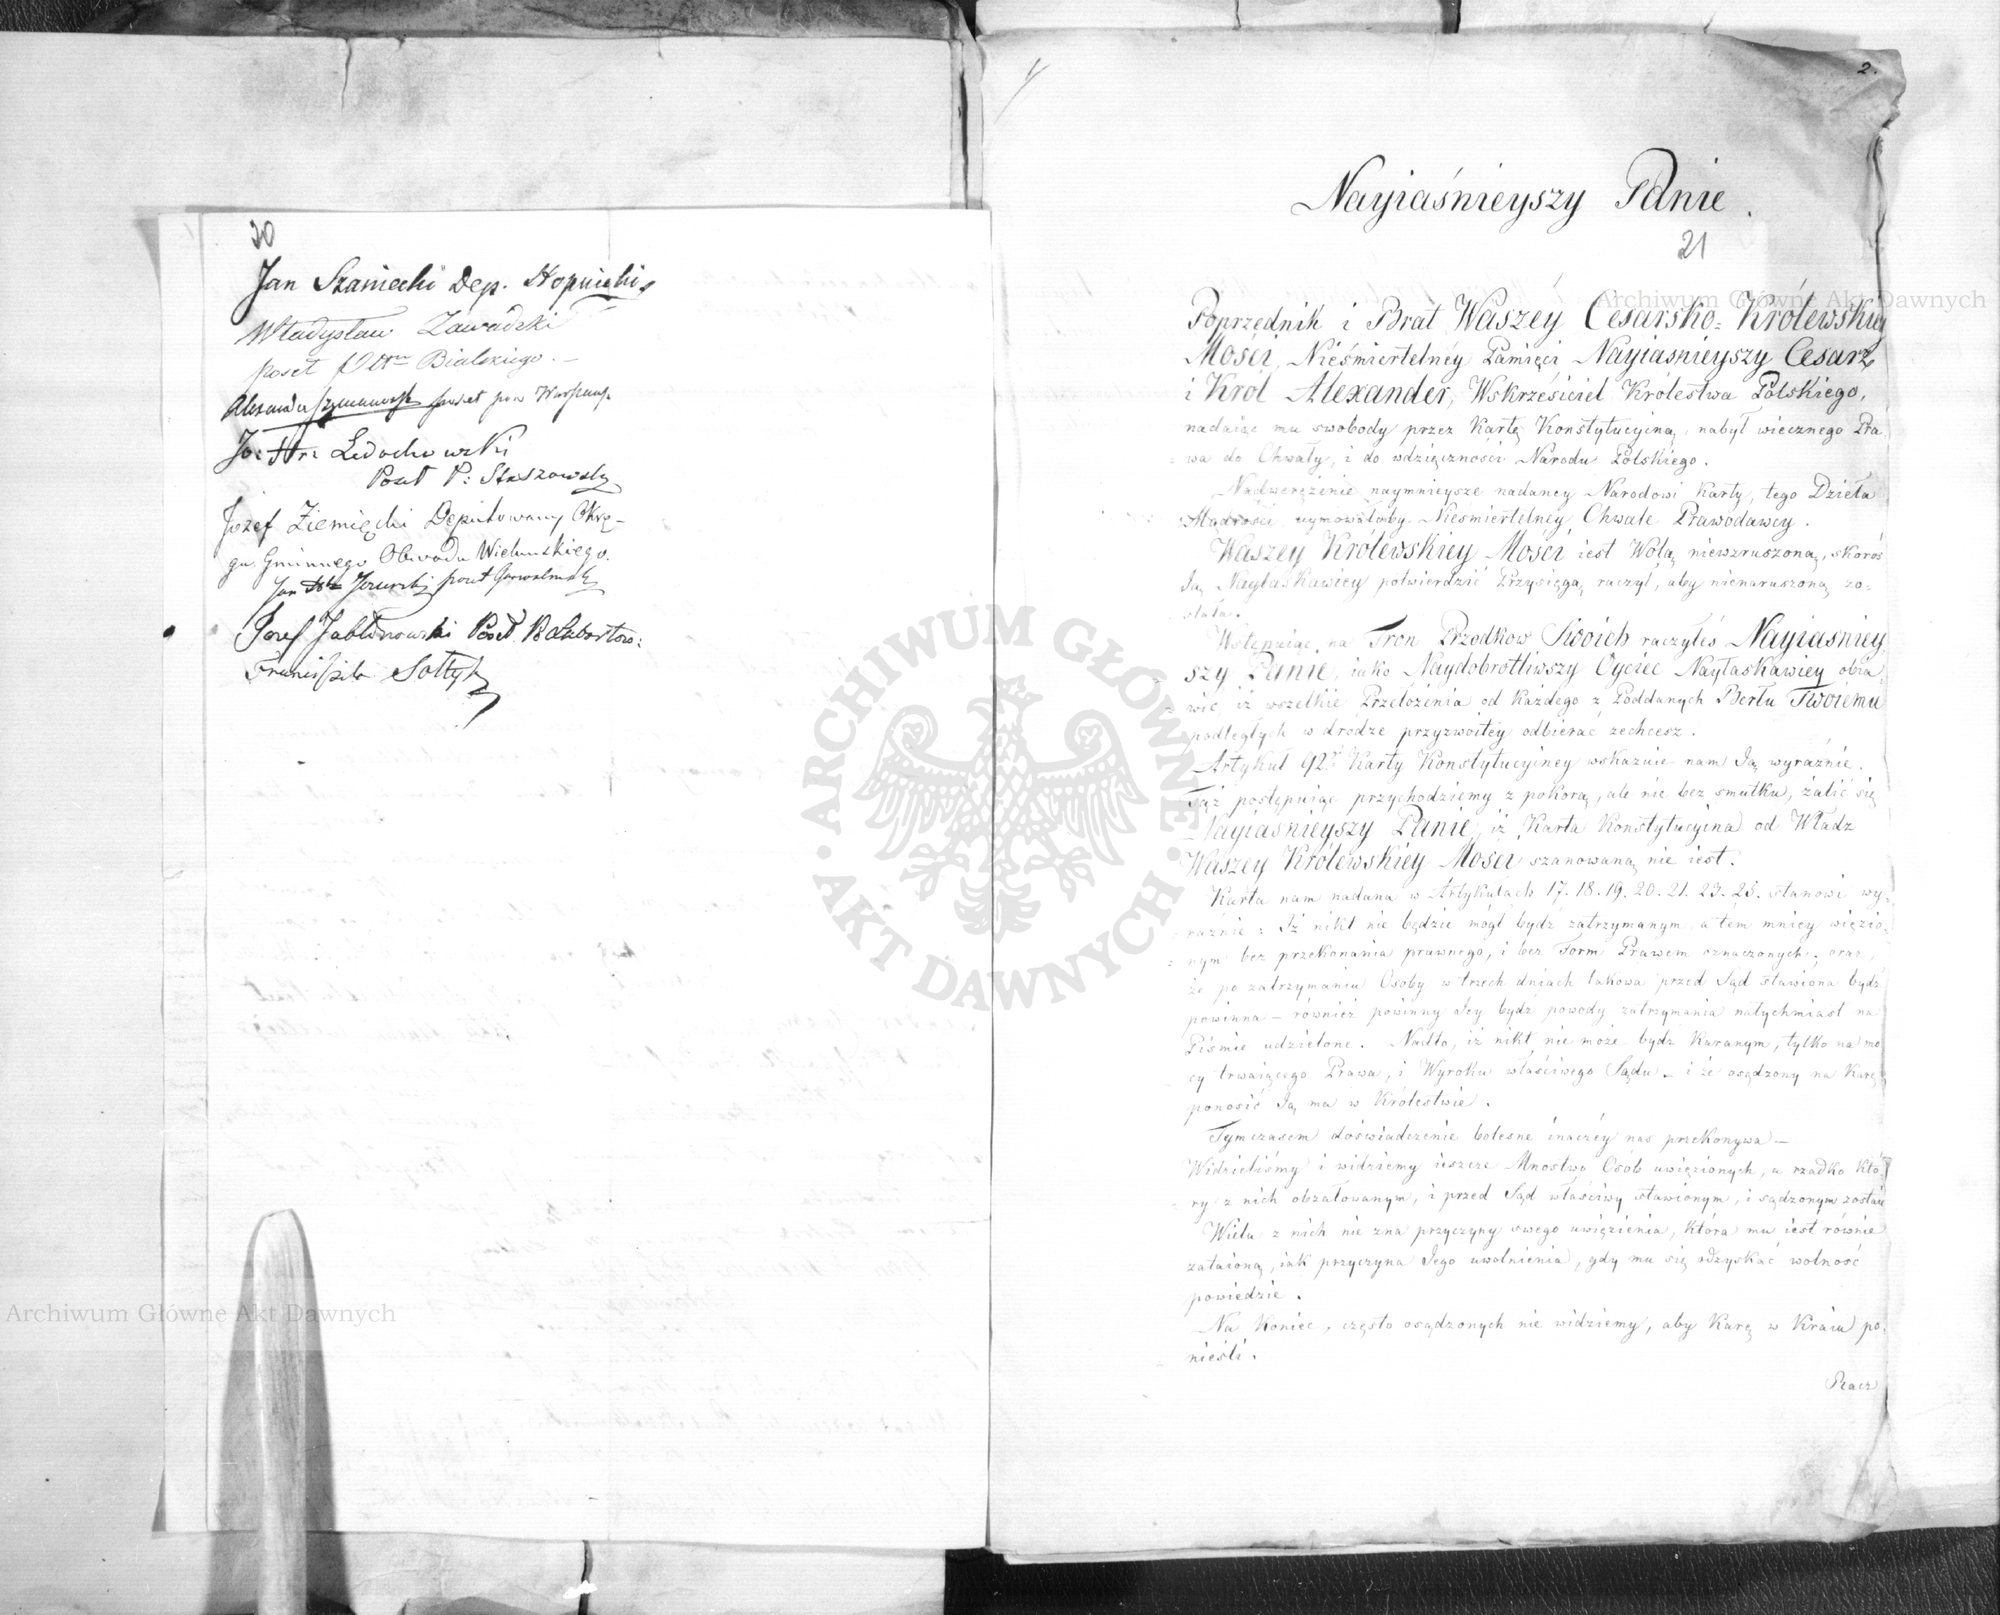 20
Jan Szaniecki Dep. Stopnicki
Władysław Zawadzki
poseł Bialskiego.
Alexander poseł pow Warszaws
Jo: Hr: Ledochowski
Poseł P: Staszowsky
Jozef Ziemięcki Deputowany Okrę-
gu Gminnego Obwodu Wieluńskiego.
Jan Jezierski poseł Garwolinski
Jozef Jabłonowski Poseł. P. Lubartow:
Franciszek Sołtyk
2.
Nayiaśnieyszy Panie.
21
Poprzednik i Brat Waszéy Cesarsko-Królewskiey
Mości, Nieśmiertelnéy Pamięci Nayiasnieyszy Cesarz
i Król Alexander, Wskrzesiciel Królestwa Polskiego,
nadaiąc mu swobody przez Kartę Konstytucyiną, nabył wiecznego Pra
wa do Chwały, i do wdzięczności Narodu Polskiego.
Nadwerężenie naymnieysze nadaney Narodowi Karty, tego Dzieła
Mądrości uymowałoby Niesmiertelney Chwale Prawodawcy.
Waszey Królewskiey Mości iest Wolą niewzruszoną, skoroś
Ją Nayłaskawiey potwierdzić Przysięgą raczył, aby nienaruszoną zo-
stała.
Wstępuiąc na Tron Przodkow Swoich raczyłeś Nayiasniey
szy Panie, iako Naydobrotliwszy Oyciec Nayłaskawiey obia
wić, iż wszelkie Przełożenia od każdego z Poddanych Berłu Twoiemu
podległych w drodze przyzwoitey odbierać zechcesz.
Artykuł 92. Karty Konstytucyiney wskazuie nam Ją wyraźnie.
Tąż postępuiąc przychodziemy z pokorą, ale nie bez smutku, żalić się
Nayiasnieyszy Panie, iż Karta Konstytucyina od Władz
Waszey Królewskiey Mosci szanowaną nie iest.
Karta nam nadana w Artykułach 17. 18. 19. 20. 21. 23. 25. stanowi wy-
raźnie: Iż nikt nie będzie mógł bydź zatrzymanym a tem mniey więzio-
nym bez przekonania prawnego, i bez Form Prawem oznaczonych, oraz,
że po zatrzymaniu Osoby w trzech dniach takowa przed Sąd stawiona bydź
powinna - również powinny Jey bydź powody zatrzymania natychmiast na
Piśmie udzielone. Nadto, iż nikt nie może bydź karanym, tylko na mo
cy trwaiącego Prawa, i Wyroku właściwego Sądu - i że osądzony na Karę
ponosić Ją ma w Królestwie.
Tymczasem doświadczenie bolesne inaczéy nas przekonywa -
Widzieliśmy i widziemy ieszcze Mnostwo Osób uwięzionych, a rzadko któ-
ry z nich obżałowanym, i przed Sąd właściwy stawionym, i sądzonym został
Wielu z nich nie zna przyczyny swego uwięzienia, która mu iest równie
zataioną, iak przyczyna Jego uwolnienia, gdy mu się odzyskać wolność
powiedzie.
Na Koniec, często osądzonych nie widziemy, aby Karę w Kraiu po-
nieśli.
Racz
Archiwum Główne Akt Dawnych
ARCHIWUM GŁÓWNE AKT DAWNYCH
Archiwum Główne Akt Dawnych